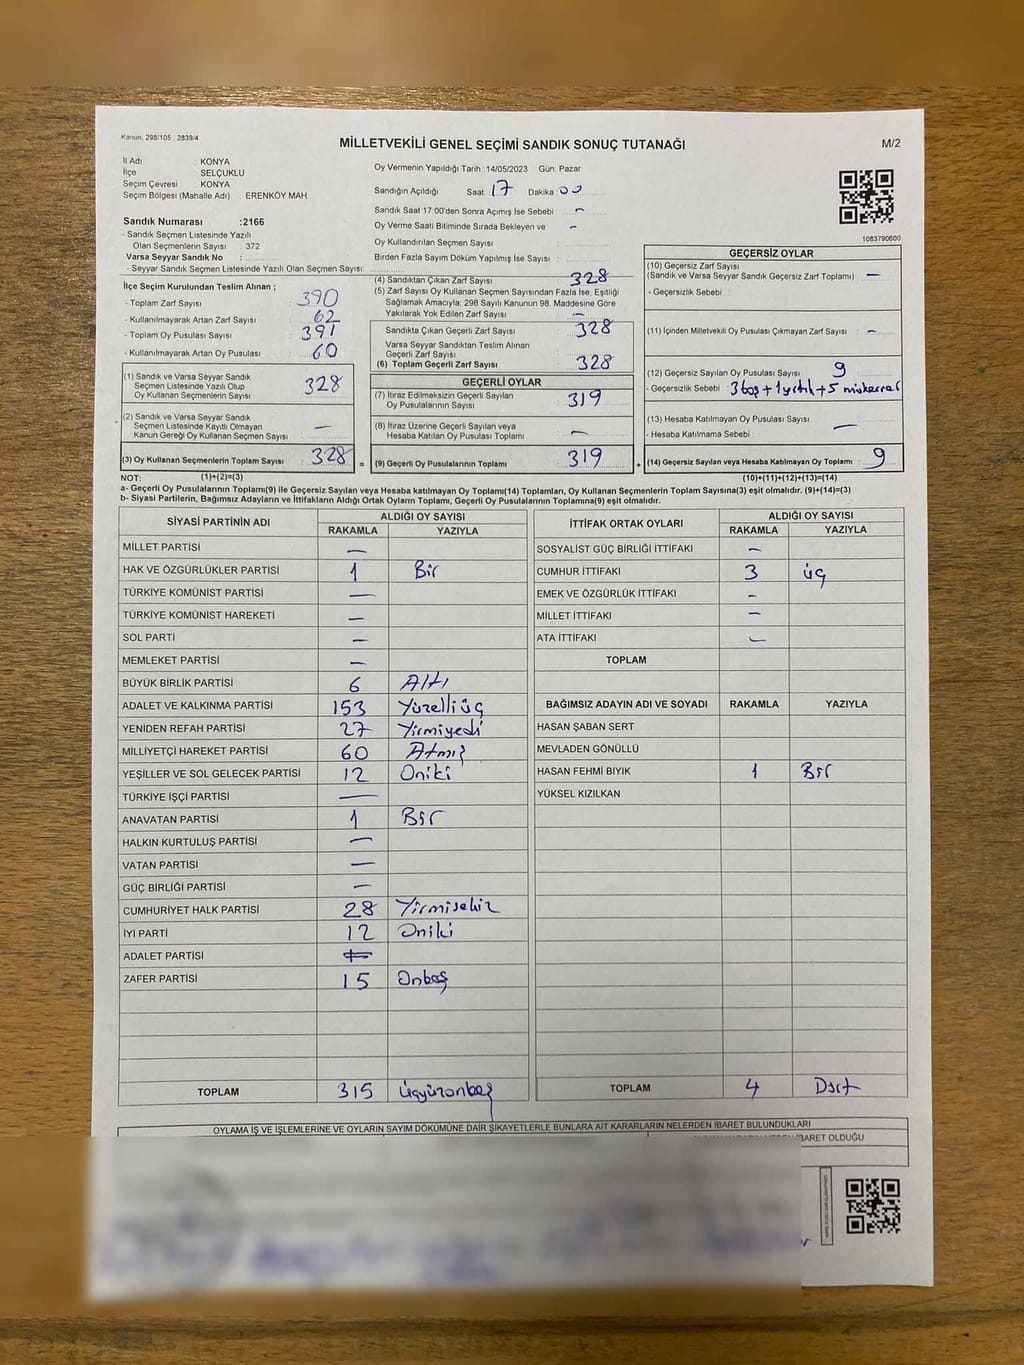 Kanun: 298/105 , 2839/4
MİLLETVEKİLİ GENEL SEÇİMİ SANDIK SONUÇ TUTANAĞI
M/2
İl Adı : KONYA
İlçe : SELÇUKLU
Seçim Çevresi : KONYA
Seçim Bölgesi (Mahalle Adı) : ERENKÖY MAH
Sandık Numarası :2166
- Sandık Seçmen Listesinde Yazılı Olan Seçmenlerin Sayısı : 372
Varsa Seyyar Sandık No :
- Seyyar Sandık Seçmen Listesinde Yazılı Olan Seçmen Sayısı :
Oy Vermenin Yapıldığı Tarih :14/05/2023 Gün: Pazar
Sandığın Açıldığı Saat 17 Dakika 00
Sandık Saat 17:00'den Sonra Açılmış İse Sebebi : -
Oy Verme Saati Bitiminde Sırada Bekleyen ve -
Oy Kullandırılan Seçmen Sayısı :
Birden Fazla Sayım Döküm Yapılmış İse Sayısı :
1083790600
İlçe Seçim Kurulundan Teslim Alınan ;
- Toplam Zarf Sayısı : 390
- Kullanılmayarak Artan Zarf Sayısı : 62
- Toplam Oy Pusulası Sayısı : 391
- Kullanılmayarak Artan Oy Pusulası : 60
(1) Sandık ve Varsa Seyyar Sandık
Seçmen Listesinde Yazılı Olup
Oy Kullanan Seçmenlerin Sayısı : 328
(2) Sandık ve Varsa Seyyar Sandık
Seçmen Listesinde Kayıtlı Olmayan
Kanun Gereği Oy Kullanan Seçmen Sayısı : -
(3) Oy Kullanan Seçmenlerin Toplam Sayısı : 328 =
(4) Sandıktan Çıkan Zarf Sayısı : 328
(5) Zarf Sayısı Oy Kullanan Seçmen Sayısından Fazla İse, Eşitliği
Sağlamak Amacıyla; 298 Sayılı Kanunun 98. Maddesine Göre
Yakılarak Yok Edilen Zarf Sayısı : -
Sandıkta Çıkan Geçerli Zarf Sayısı : 328
Varsa Seyyar Sandıktan Teslim Alınan
Geçerli Zarf Sayısı :
(6) Toplam Geçerli Zarf Sayısı : 328
GEÇERLİ OYLAR
(7) İtiraz Edilmeksizin Geçerli Sayılan
Oy Pusulalarının Sayısı : 319
(8) İtiraz Üzerine Geçerli Sayılan veya
Hesaba Katılan Oy Pusulası Toplamı : -
(9) Geçerli Oy Pusulalarının Toplamı : 319 +
GEÇERSİZ OYLAR
(10) Geçersiz Zarf Sayısı
(Sandık ve Varsa Seyyar Sandık Geçersiz Zarf Toplamı) : -
- Geçersizlik Sebebi :
(11) İçinden Milletvekili Oy Pusulası Çıkmayan Zarf Sayısı : -
(12) Geçersiz Sayılan Oy Pusulası Sayısı : 9
- Geçersizlik Sebebi : 3 boş + 1 yırtık + 5 mükerrer
(13) Hesaba Katılmayan Oy Pusulası Sayısı : -
- Hesaba Katılmama Sebebi :
(14) Geçersiz Sayılan veya Hesaba Katılmayan Oy Toplamı : 9
NOT: (1)+(2)=(3) (10)+(11)+(12)+(13)=(14)
a- Geçerli Oy Pusulalarının Toplamı(9) ile Geçersiz Sayılan veya Hesaba katılmayan Oy Toplamı(14) Toplamları, Oy Kullanan Seçmenlerin Toplam Sayısına(3) eşit olmalıdır. (9)+(14)=(3)
b- Siyasi Partilerin, Bağımsız Adayların ve İttifakların Aldığı Ortak Oyların Toplamı, Geçerli Oy Pusulalarının Toplamına(9) eşit olmalıdır.
SİYASİ PARTİNİN ADI ALDIĞI OY SAYISI
RAKAMLA YAZIYLA
MİLLET PARTİSİ -
HAK VE ÖZGÜRLÜKLER PARTİSİ 1 Bir
TÜRKİYE KOMÜNİST PARTİSİ -
TÜRKİYE KOMÜNİST HAREKETİ -
SOL PARTİ -
MEMLEKET PARTİSİ -
BÜYÜK BİRLİK PARTİSİ 6 Altı
ADALET VE KALKINMA PARTİSİ 153 Yüzelliüç
YENİDEN REFAH PARTİSİ 27 Yirmiyedi
MİLLİYETÇİ HAREKET PARTİSİ 60 Atmış
YEŞİLLER VE SOL GELECEK PARTİSİ 12 Oniki
TÜRKİYE İŞÇİ PARTİSİ -
ANAVATAN PARTİSİ 1 Bir
HALKIN KURTULUŞ PARTİSİ -
VATAN PARTİSİ -
GÜÇ BİRLİĞİ PARTİSİ -
CUMHURİYET HALK PARTİSİ 28 Yirmisekiz
İYİ PARTİ 12 Oniki
ADALET PARTİSİ
ZAFER PARTİSİ 15 Onbeş
TOPLAM 315 Üçyüzonbeş
İTTİFAK ORTAK OYLARI ALDIĞI OY SAYISI
RAKAMLA YAZIYLA
SOSYALİST GÜÇ BİRLİĞİ İTTİFAKI -
CUMHUR İTTİFAKI 3 üç
EMEK VE ÖZGÜRLÜK İTTİFAKI -
MİLLET İTTİFAKI -
ATA İTTİFAKI -
TOPLAM
BAĞIMSIZ ADAYIN ADI VE SOYADI RAKAMLA YAZIYLA
HASAN ŞABAN SERT
MEVLADEN GÖNÜLLÜ
HASAN FEHMI BIYIK 1 Bir
YÜKSEL KIZILKAN
TOPLAM 4 Dört
OYLAMA İŞ VE İŞLEMLERİNE VE OYLARIN SAYIM DÖKÜMÜNE DAİR ŞİKAYETLERLE BUNLARA AİT KARARLARIN NELERDEN İBARET BULUNDUKLARI
İBARET OLDUĞU